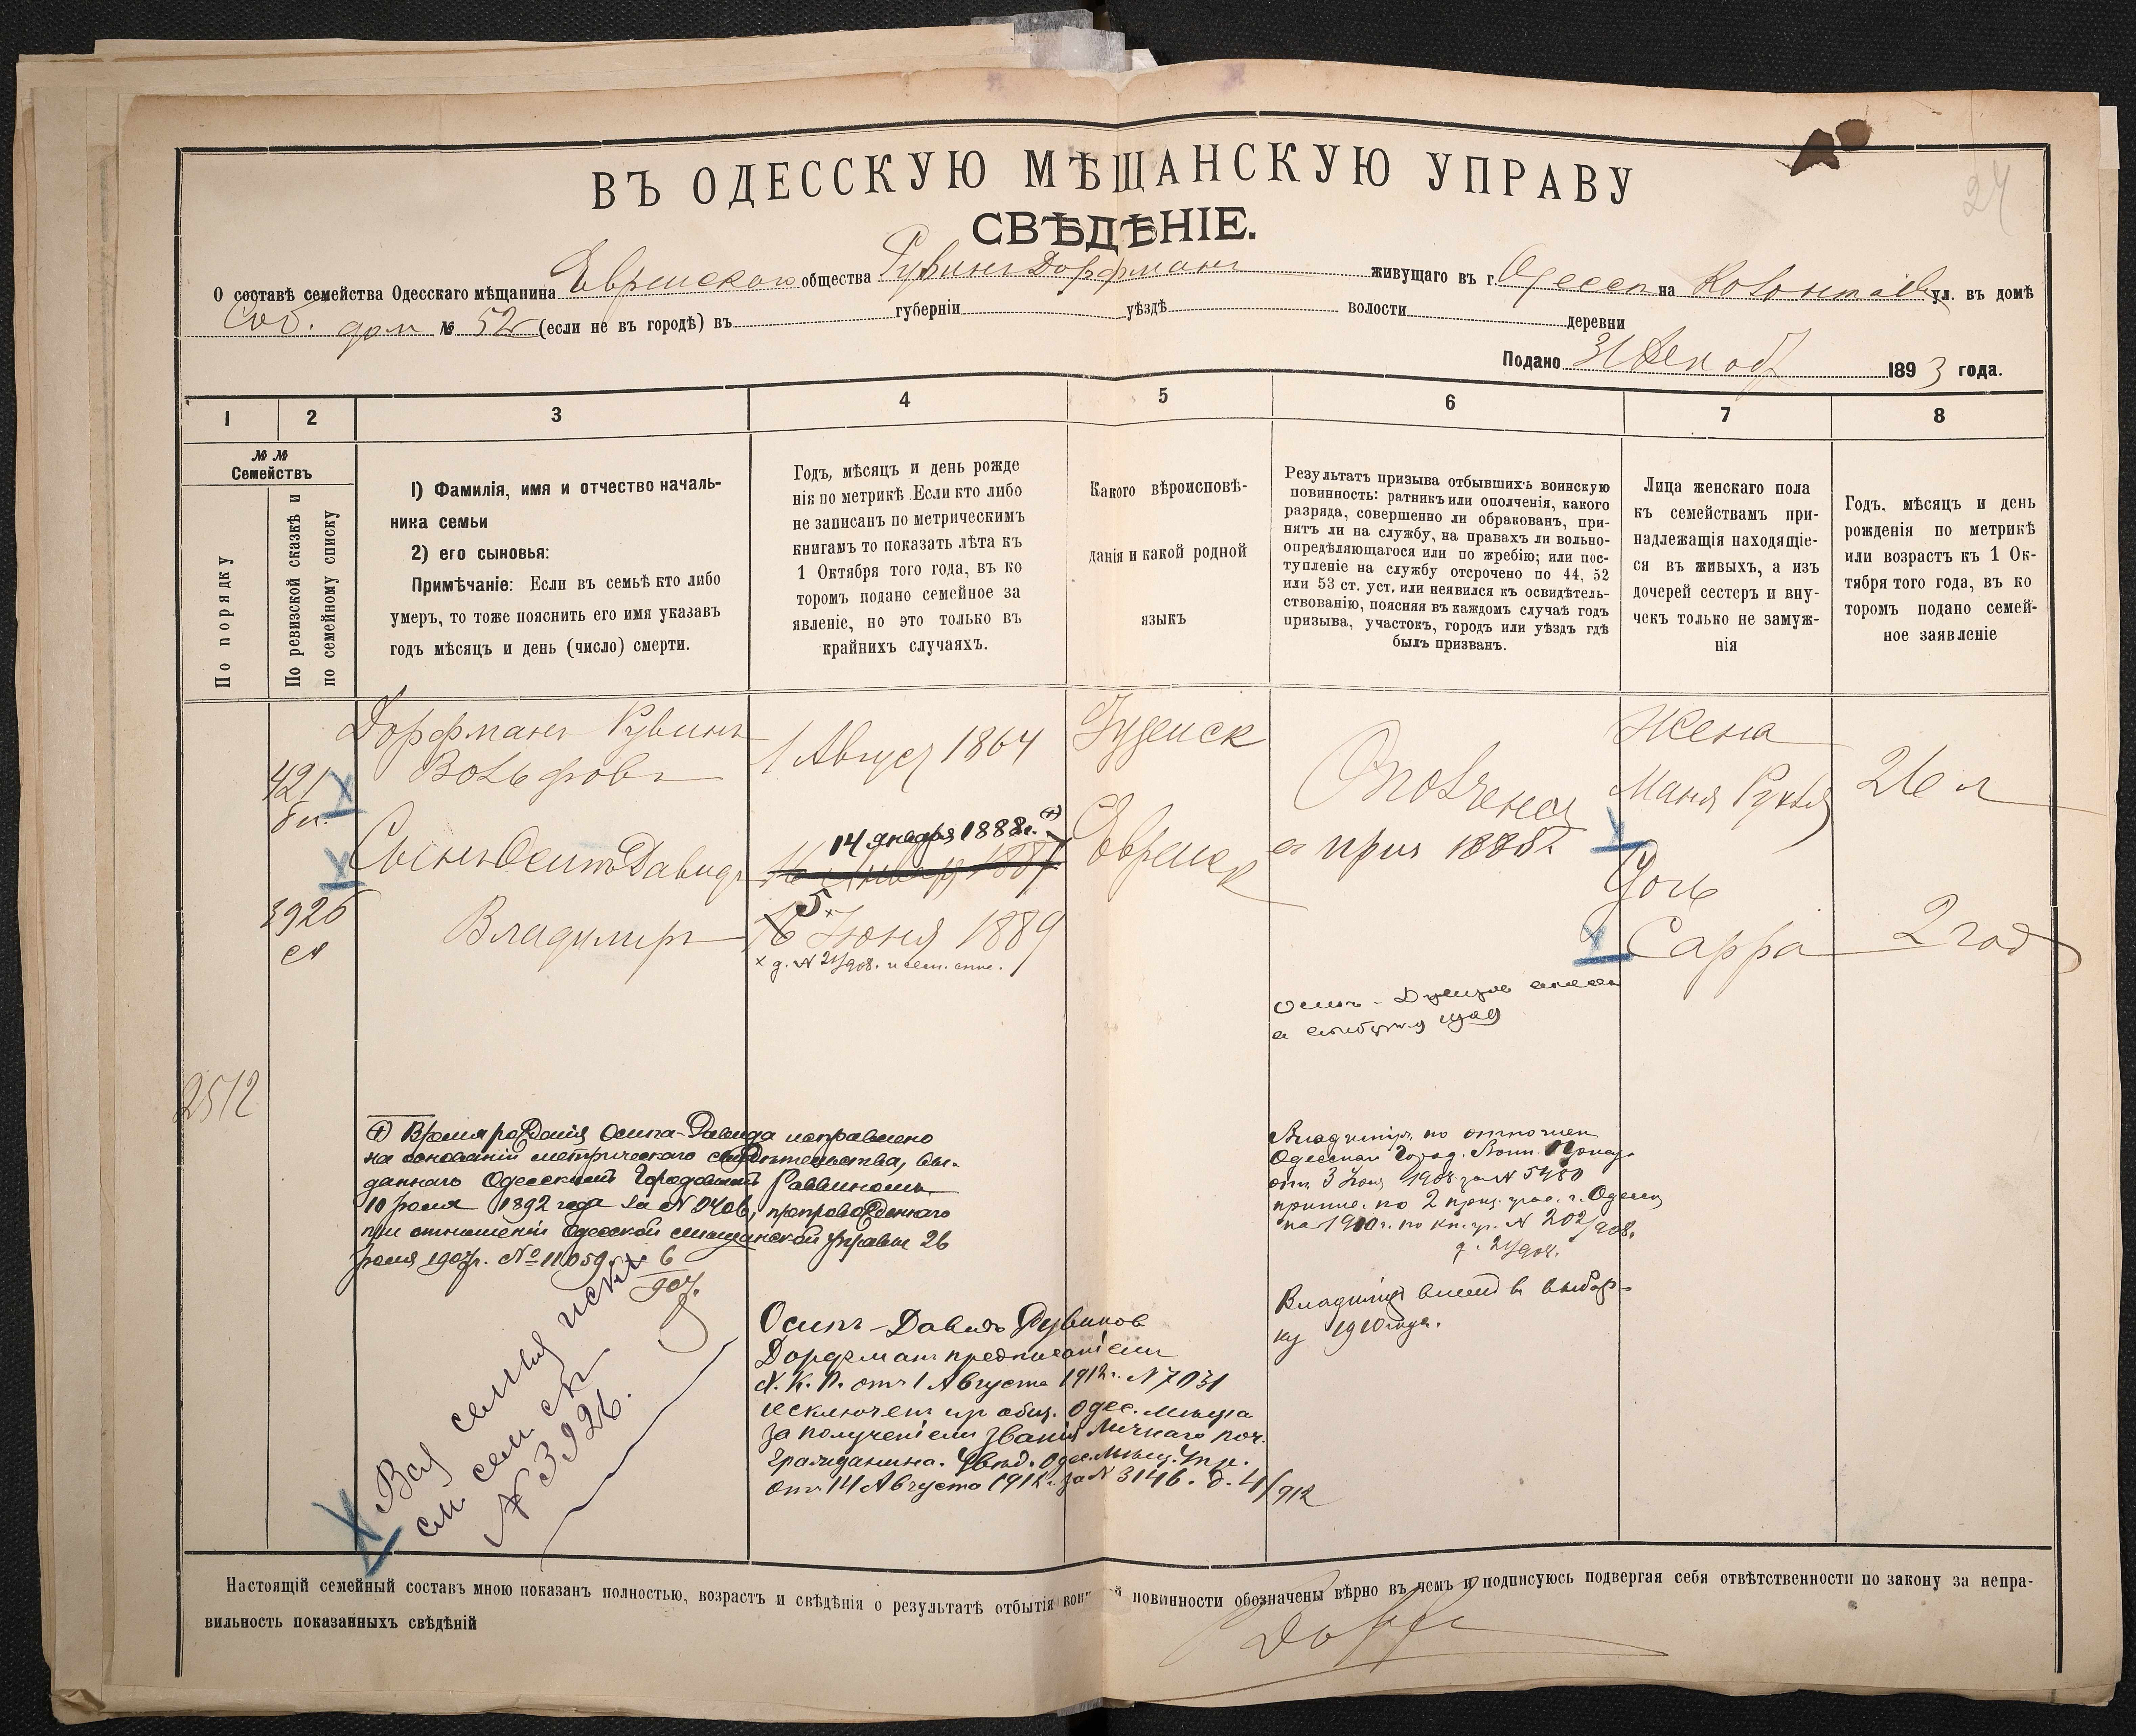 24
ВЪ ОДЕССКУЮ МѢЩАНСКУЮ УПРАВУ
СВѢДѢНІЕ.
О составѣ семейства Одесскаго мѣщанина Еврейскаго общества Рувинъ Дорфманъ живущаго въ г. Одессѣ на ул. въ домѣ
Соб. дом № 52 (если не въ городѣ) въ губерніи уѣздѣ волости деревни
Подано 31 1893 года.
1 2 3 4 5 6 7 8
№ №
Семействъ
По порядку
По ревизской сказкѣ и
по семейному списку
1) Фамилія, имя и отчество началь-
ника семьи
2) его сыновья:
Примѣчаніе: Если въ семьѣ кто либо
умеръ, то тоже пояснить его имя указавъ
годъ мѣсяцъ и день (число) смерти.
Годъ, мѣсяцъ и день рожде
нія по метрикѣ. Если кто либо
не записанъ по метрическимъ
книгамъ то показать лѣта къ
1 Октября того года, въ ко
торомъ подано семейное за
явленіе, но это только въ
крайнихъ случаяхъ.
Какого вѣроисповѣ-
данія и какой родной
языкъ
Результатъ призыва отбывшихъ воинскую
повинность: ратникъ или ополченія, какого
разряда, совершенно ли обракованъ, при-
нятъ ли на службу, на правахъ ли вольно-
опредѣляющагося или по жребію; или пос-
тупленіе на службу отсрочено по 44, 52
или 53 ст. уст. или неявился къ освидѣтель-
ствованію, поясняя въ каждомъ случаѣ годъ
призыва, участокъ, городъ или уѣздъ гдѣ
былъ призванъ.
Лица женскаго пола
къ семействамъ при-
надлежащія находящіе-
ся въ живыхъ, а изъ
дочерей сестеръ и вну-
чекъ только не замуж-
нія
Годъ, мѣсяцъ и день
рожденія по метрикѣ
или возрастъ къ 1 Ок-
тября того года, въ ко
торомъ подано семей-
ное заявленіе
Дорфманъ Рувинъ
Вольфовъ
1 Август 1864
Іудейск
Жена
Маня Рухля
26 л
421
Сынъ Осипъ Давидъ
14 января 1888г.
16 Января 1887
Еврейск
приз 1885
Дочь
3926
Владимиръ
5
16 Іюня 1889
Сарра
2 год
х д. № 21/908.
2512
Время рожденія Осипа-Давида исправлено
на основаніи метрическаго свидѣтельства, вы-
даннаго Одесскимъ Городовымъ Раввиномъ
10 Іюля 1892 года за № 2406, препровожденнаго
при отношеніи Одесской мѣщанской управы 26
Іюля 1907г. № 11059. 6/907.
Владимиръ по отношен
Одесскаго Город. Воин. Присут.
отъ 3 1908 за № 5480
припис. по 2 приз. учас. г. Одессы
на 1910г. по кн. гр. № 202/908.
д. 21/908.
Владимиръ внесен въ выбор-
ку 1910 года.
Осипъ-Давидъ Рувинов
Дорфманъ предписаніемъ
Х. К. П. отъ 1 Августа 1912г. № 7031
исключенъ из общ. Одес. мѣщан
за полученіемъ званія Личнаго поч.
Гражданина. Увѣд. Одес. Мѣщ. Упр.
отъ 14 Августа 1912г. за № 3146. д. 4/912
Вся семья
см. сем. сп.
№ 3926.
Настоящій семейный составъ мною показанъ полностью, возрастъ и свѣдѣнія о результатѣ отбытія повинности обозначены вѣрно въ чемъ и подписуюсь подвергая себя отвѣтственности по закону за непра-
вильность показанныхъ свѣдѣній